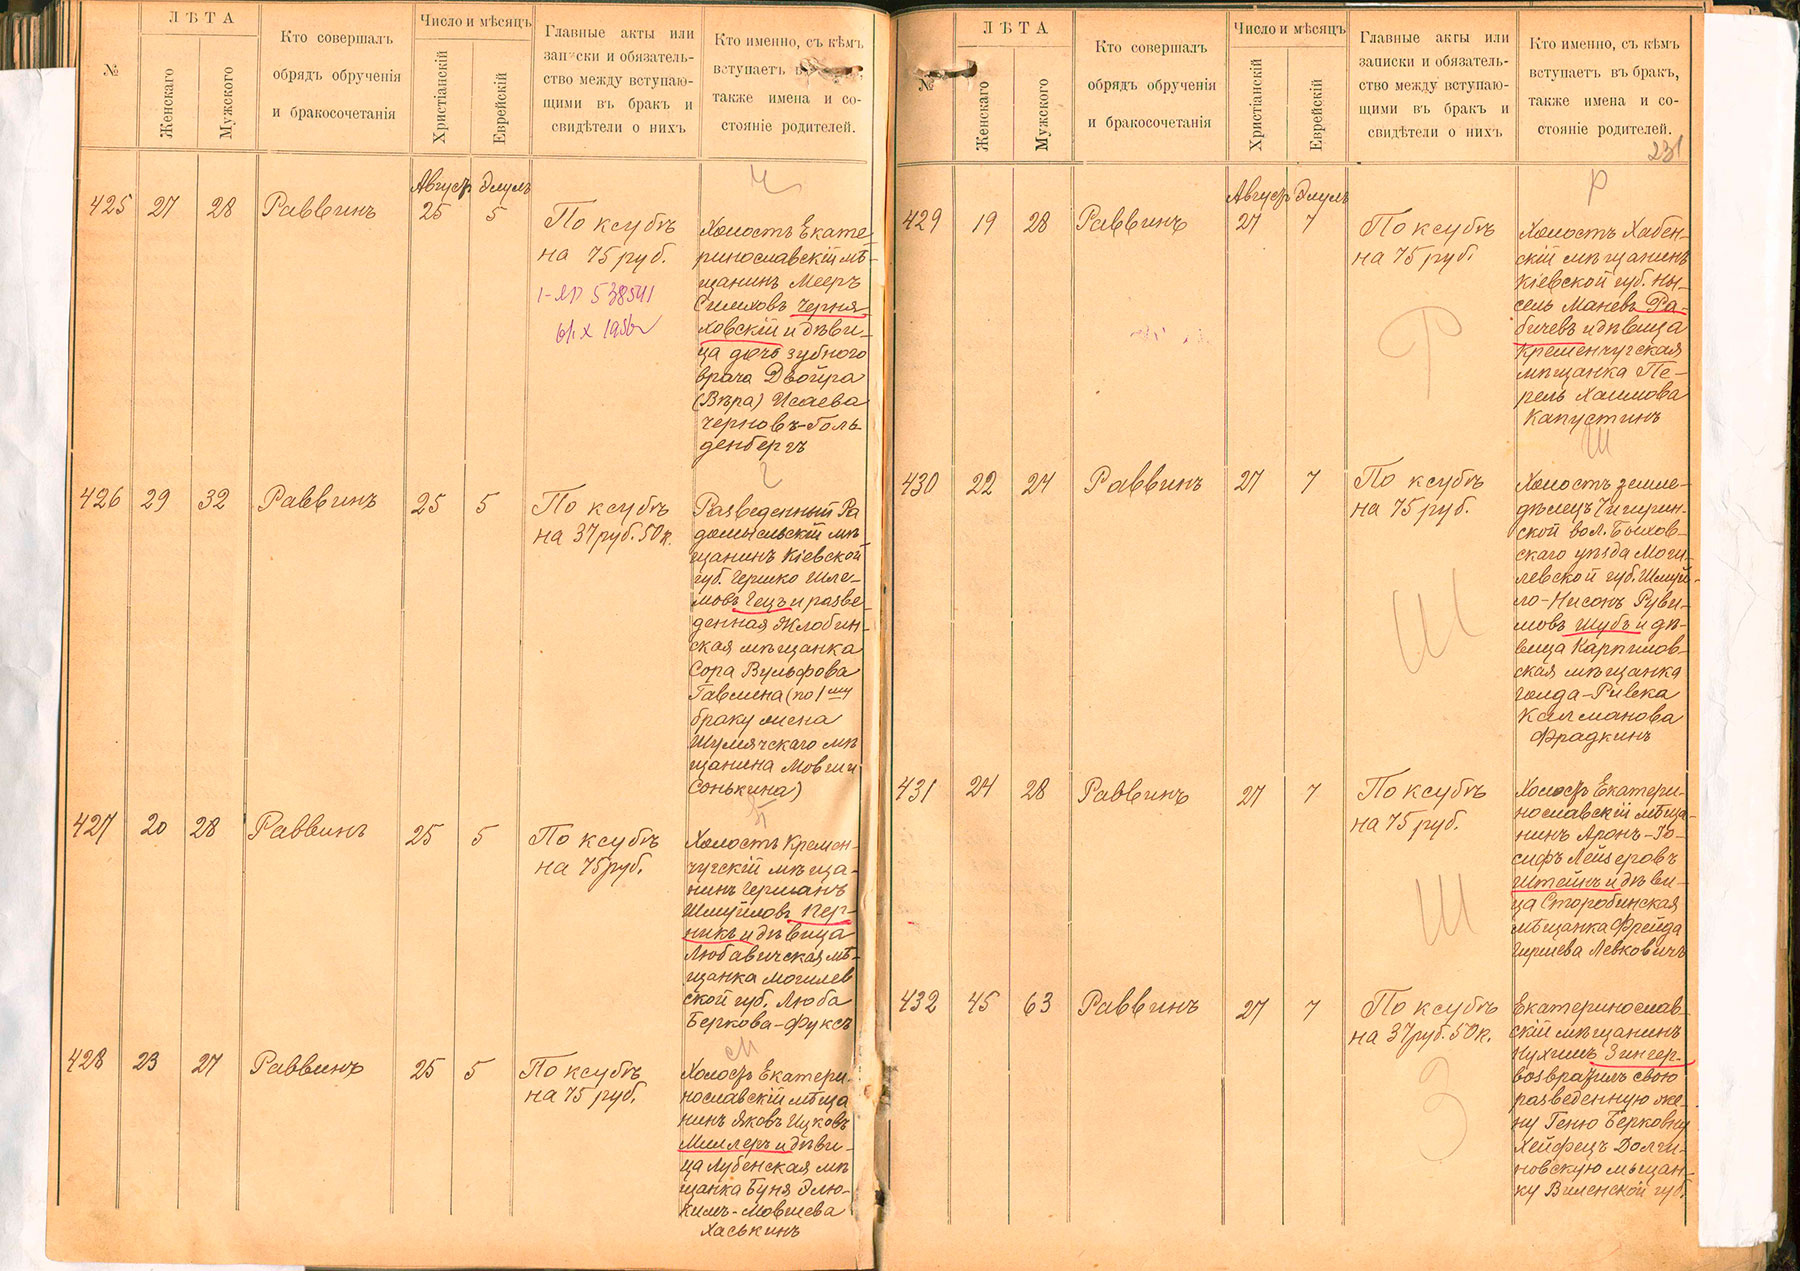 №
ЛѢТА
Женскаго
Мужского
Кто совершалъ
обрядъ обрученія
и бракосочетанія
Число и мѣсяцъ
Христіанскій
Еврейскій
Главные акты или
записки и обязатель-
ство между вступаю-
щими въ бракъ и
свидѣтели о нихъ
Кто именно, съ кѣмъ
вступаетъ
также имена и со-
стояніе родителей.
Август Элулъ
425 27 28 Раввинъ 25 5
По ксубѣ
на 75 руб.
538541
Холостъ Екате-
ринославскій мѣ-
щанинъ Мееръ
Симховъ Черня-
ховскій и дѣви-
ца дочь зубного
врача Двойра
(Вѣра) Исаева
Черновъ-Голь-
денбергъ
426 29 32 Раввинъ 25 5
По ксубѣ
на 37 руб. 50 к.
Разведенный Ра
домысльскій мѣ
щанинъ Кіевской
губ. Гершко Шле-
мовъ Гецъ и разве-
денная Жлобин-
ская мѣщанка
Сора Вульфова
(по 1му
браку жена
Шумячскаго мѣ
щанина Мовши
Сонькина)
427 20 28 Раввинъ 25 5
По ксубѣ
на 75 руб.
Холостъ Кремен-
чугскій мѣща-
нинъ Германъ
Шмуйловъ Пер-
никъ и дѣвица
Любавичская мѣ-
щанка Могилев
ской губ. Люба
Беркова-Фуксъ
428 23 27 Раввинъ 25 5
По ксубѣ
на 75 руб.
М
Холост Екатери-
нославскій мѣща
нинъ Яковъ Ицковъ
Миллеръ и дѣви-
ца Лубенская мѣ
щанка Буня Элю-
кимъ-Мовшева
Хаськинъ
№
ЛѢТА
Женскаго
Мужского
Кто совершалъ
обрядъ обрученія
и бракосочетанія
Число и мѣсяцъ
Христіанскій
Еврейскій
Главные акты или
записки и обязатель-
ство между вступаю-
щими въ бракъ и
свидѣтели о нихъ
Кто именно, съ кѣмъ
вступаетъ въ бракъ,
также имена и со-
стояніе родителей.
231
Август Элулъ
429 19 28 Раввинъ 27 7
По ксубѣ
на 75 руб.
Р
Р
Холостъ Хабен-
скій мѣщанинъ
Кіевской губ. Ны-
сель Маневъ Ра-
бичевъ и дѣвица
Кременчугская
мѣщанка Пе-
рель Хаимова
Капустинъ
430 22 24 Раввинъ 27 7
По ксубѣ
на 75 руб.
Ш
Ш
Холостъ земле-
дѣлецъ Чигирин-
ской вол. Быхов-
скаго уѣзда Моги-
левской губ. Шмуй-
ло-Нисонъ Руви-
мовъ Шубъ и дѣ-
вица Карпилов-
ская мѣщанка
Голда-Ривка
Калманова
Фрадкинъ
431 24 28 Раввинъ 27 7
По ксубѣ
на 75 руб.
Ш
Холост Екатери-
нославскій мѣща-
нинъ Аронъ-Іо-
сифъ Лейзеровъ
Штейнъ и дѣви-
ца Старобинская
мѣщанка Фрейда
Гиршева Левковичъ
432 45 63 Раввинъ 27 7
По ксубѣ
на 37 руб. 50 к.
З
Екатеринослав-
скій мѣщанинъ
Нухимъ Зингер-
возвратилъ свою
разведенную же-
ну Геню Берковну
Хейфецъ Долги-
новскую мѣщан-
ку Виленской губ.